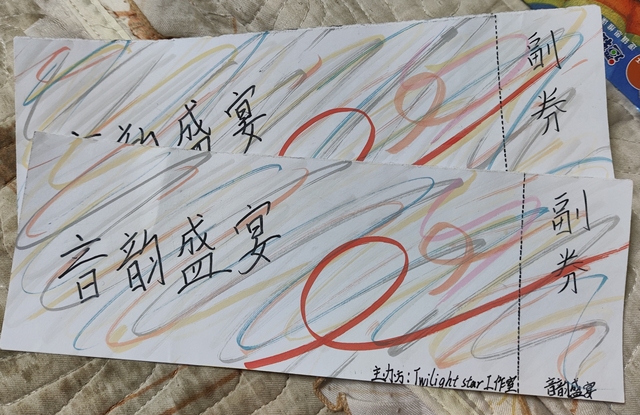 韵盛宴
副
券
音韵盛宴
副
券
主办方:Twilight star工作室
音韵盛宴